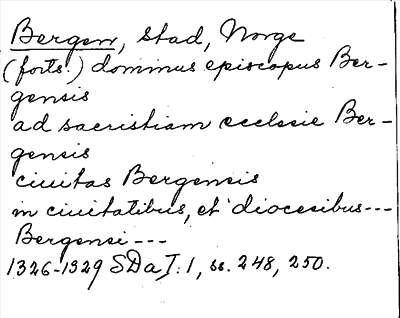 Bergen, stad, Norge
(forts.) dominus episcopus Ber-
gensis
ad sacristiam ecclesie Ber-
gensis
ciuitas Bergensis
in ciuitatibus, et diocesibus ---
Bergensi ---
1326-1329 SDaI: 1, ss. 248, 250.